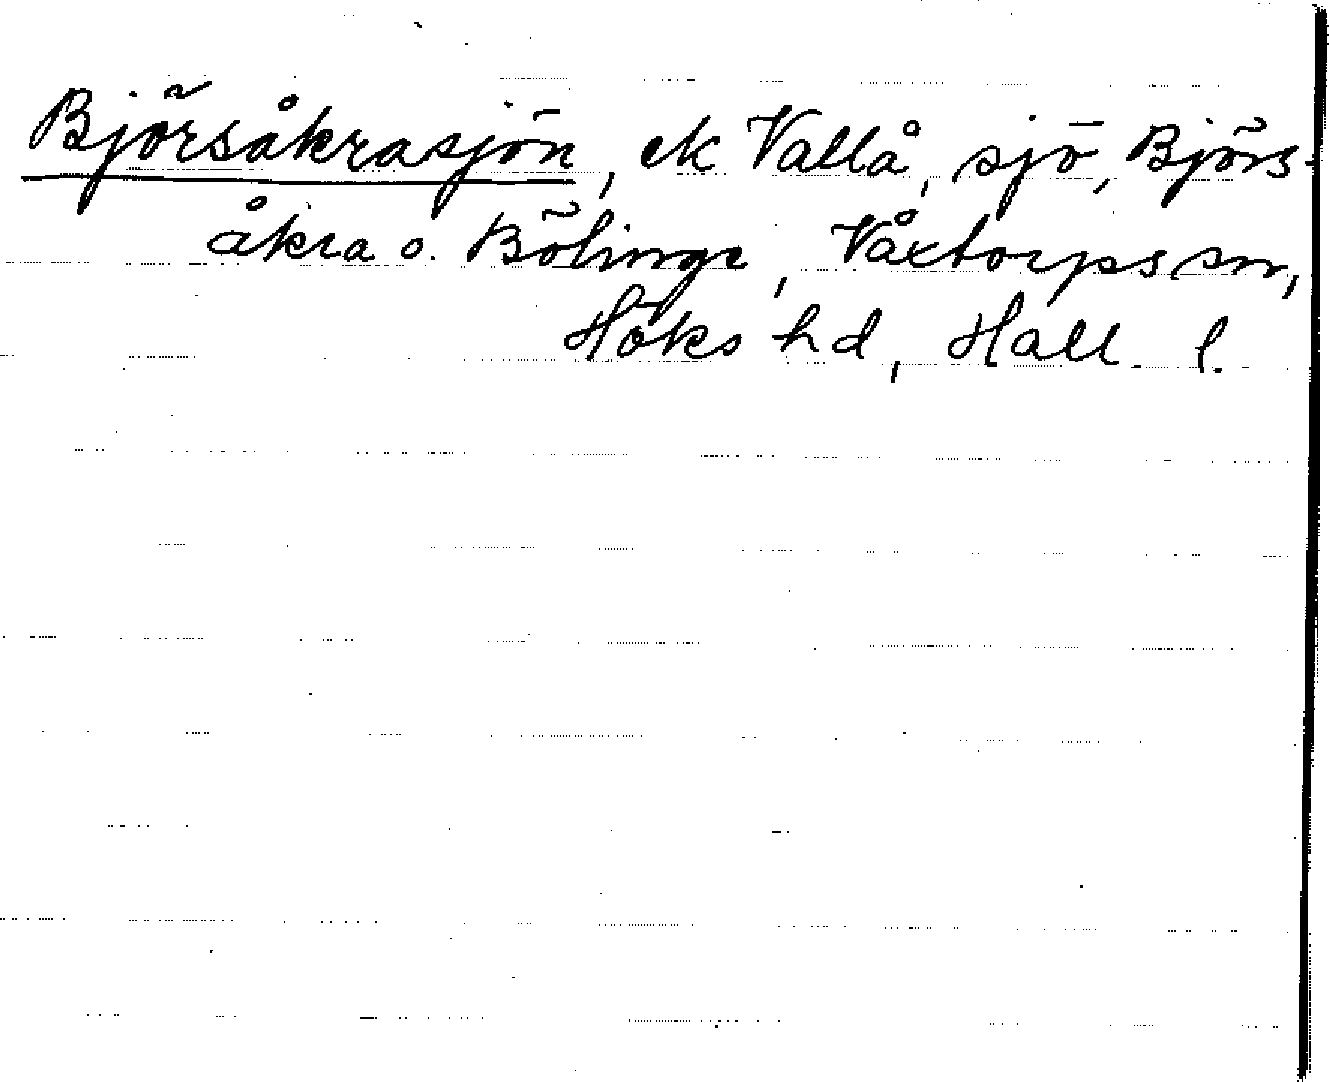 Björsåkrasjön, ek Vallå, sjö, Björs-
åkra o. Bölinge, Våxtorps sn,
Höks hd, Hall. l.